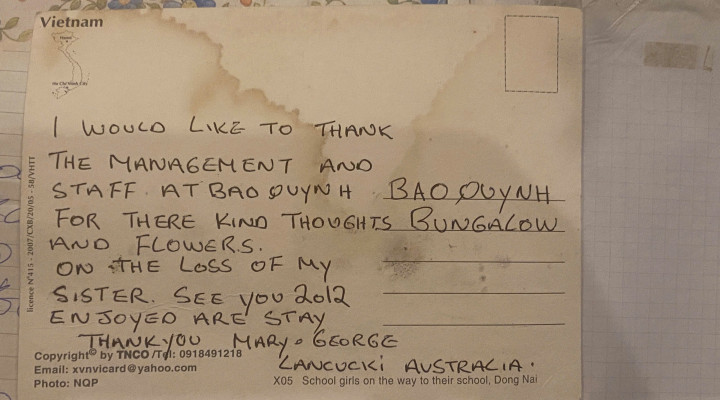 Vietnam
Hanoi
Ho Chi Minh City
I WOULD LIKE TO THANK
THE MANAGEMENT AND
STAFF. AT BAO QUYNH
FOR THERE KIND THOUGHTS
AND FLOWERS.
ON THE LOSS OF MY
SISTER. SEE YOU 2012
ENJOYED ARE STAY
THANKYOU MARY & GEORGE
LANCUCKI AUSTRALIA.
BAO QUYNH
BUNGALOW
licence N°415 - 2007/CXB/20/05 - 58/VHTT
Copyright© by TNCO /Tel: 0918491218
Email: xvnvicard@yahoo.com
Photo: NQP
X05 School girls on the way to their school, Dong Nai